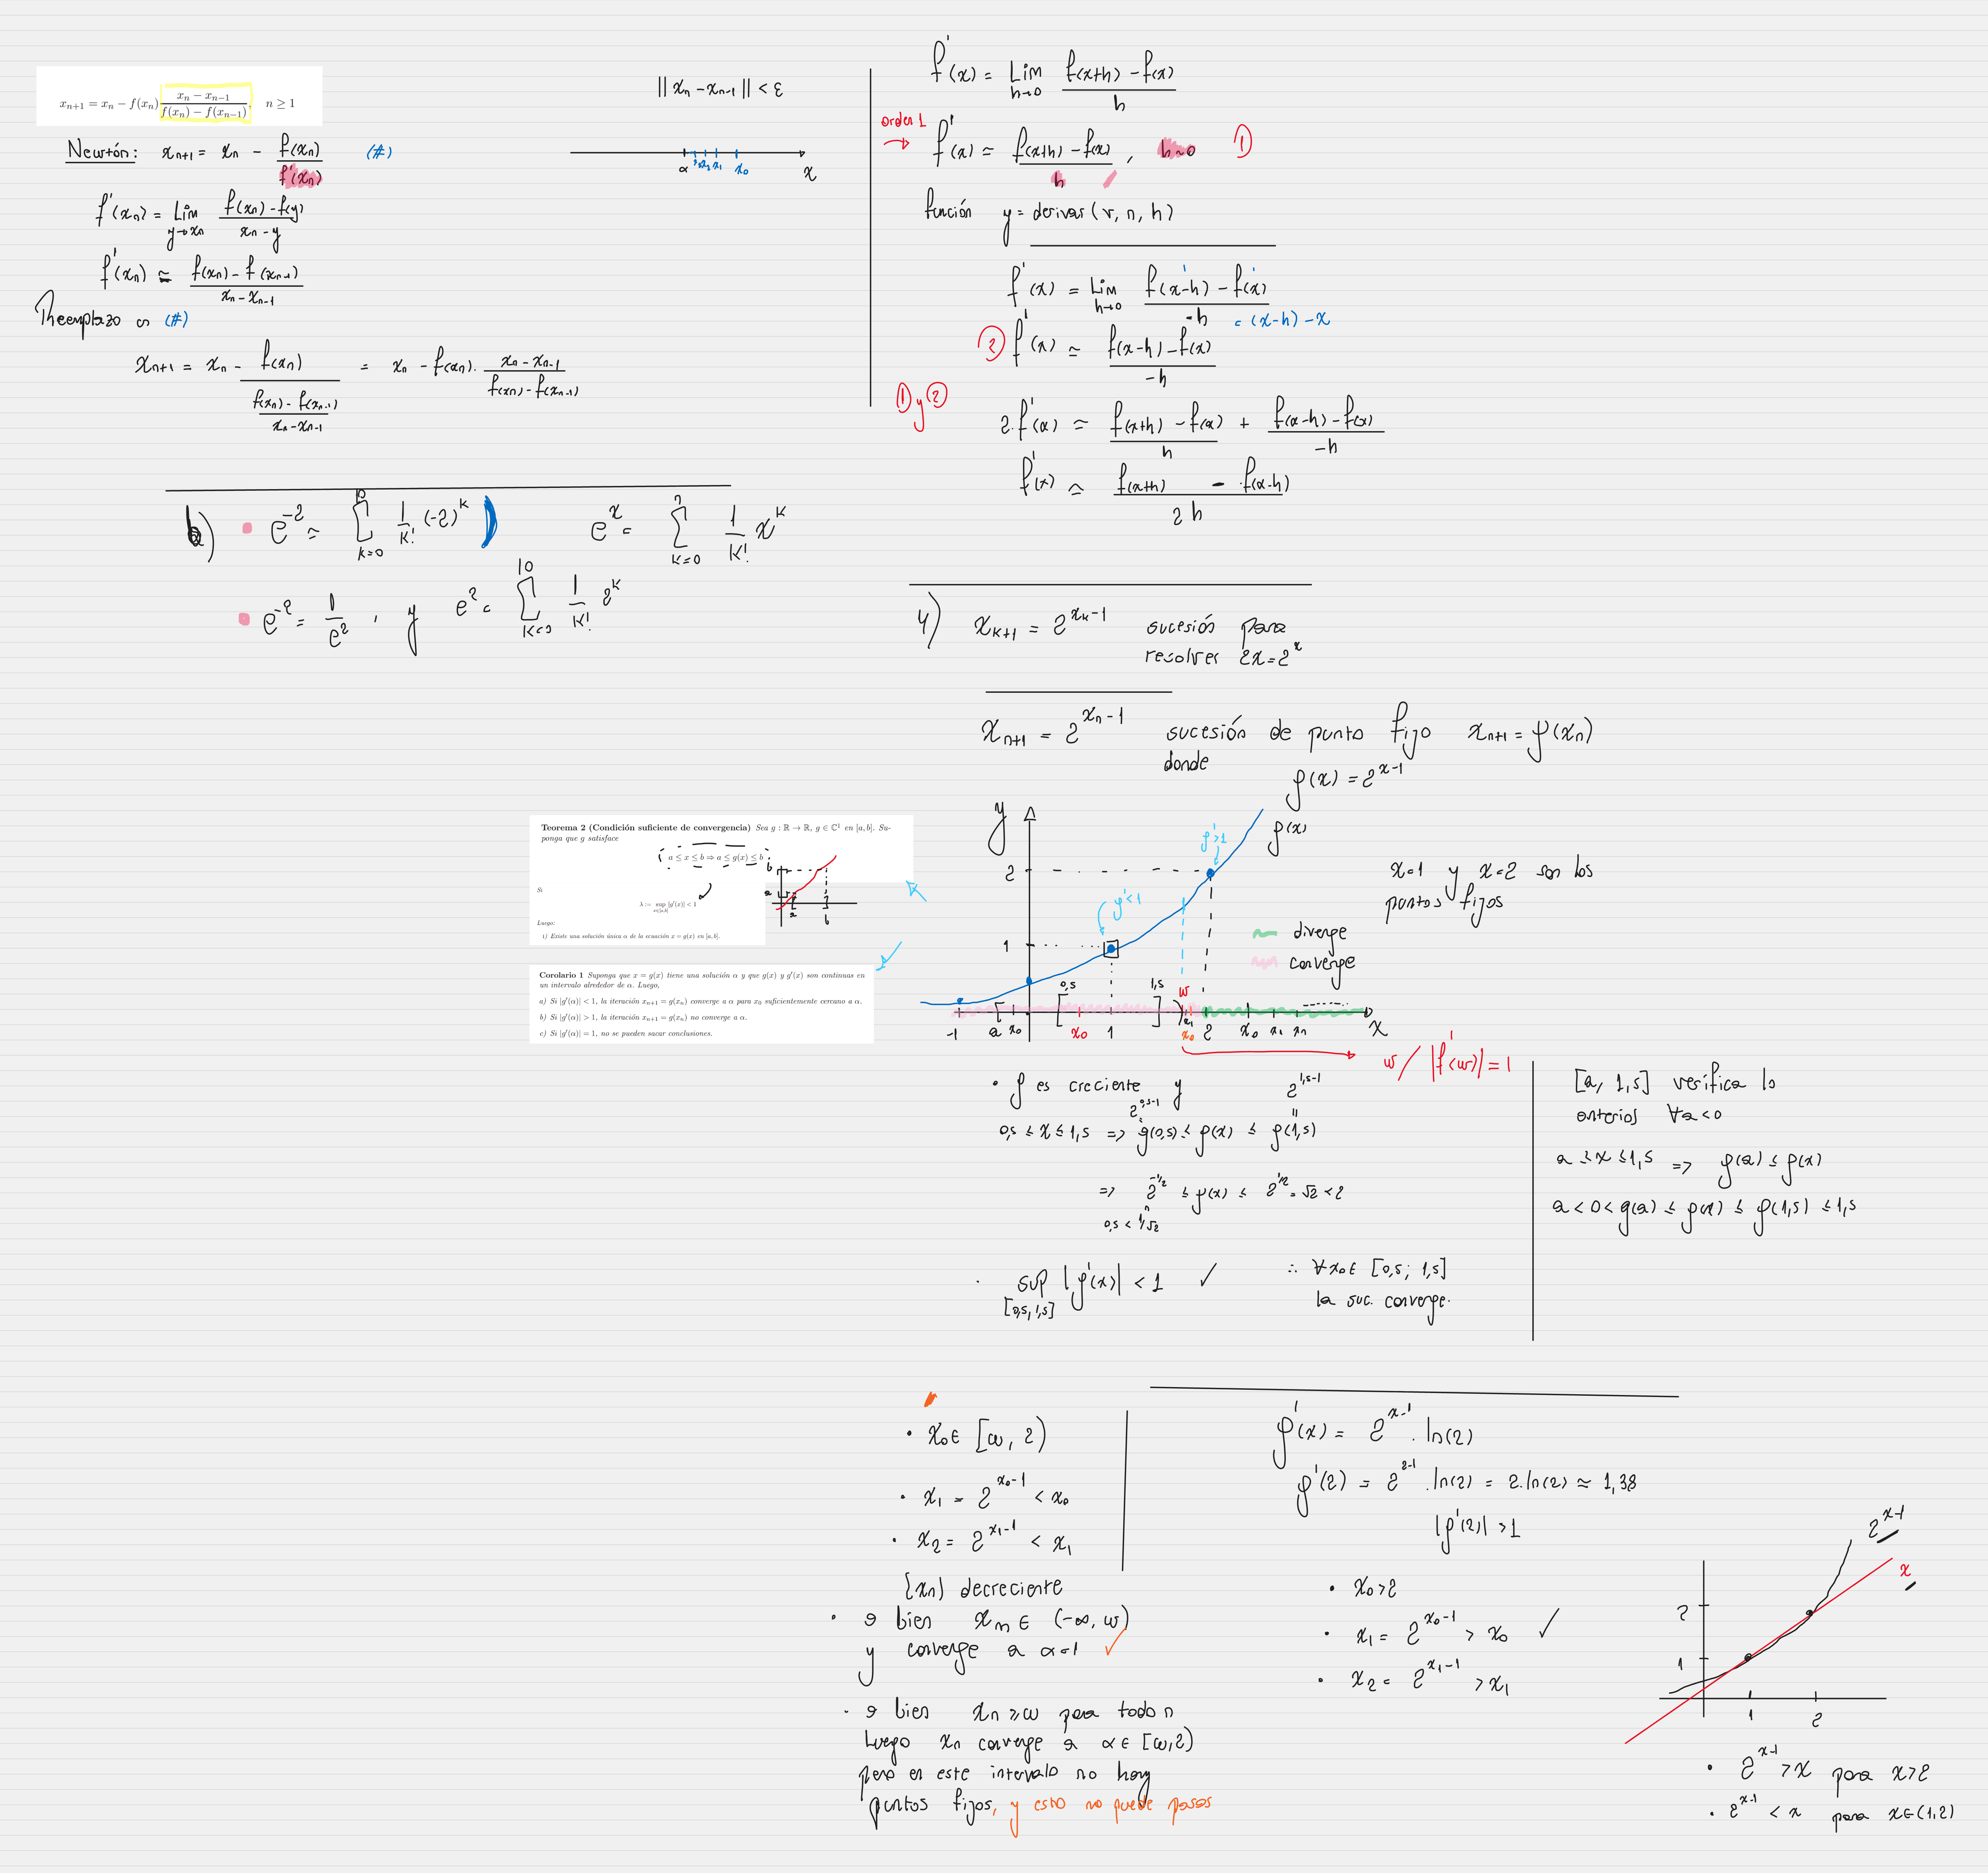 xₙ₊₁ = xₙ − f(xₙ) (xₙ − xₙ₋₁)/(f(xₙ) − f(xₙ₋₁)), n ≥ 1
Newtón: xₙ₊₁ = xₙ − f(xₙ)/f'(xₙ) (#)
f'(xₙ) = Lim y→xₙ (f(xₙ) − f(y))/(xₙ − y)
f'(xₙ) ≃ (f(xₙ) − f(xₙ₋₁))/(xₙ − xₙ₋₁)
Reemplazo en (#)
xₙ₊₁ = xₙ − f(xₙ)/((f(xₙ) − f(xₙ₋₁))/(xₙ − xₙ₋₁)) = xₙ − f(xₙ) · (xₙ − xₙ₋₁)/(f(xₙ) − f(xₙ₋₁))
|| xₙ − xₙ₋₁ || < ε
α x₂ x₁ x₀ x
f'(x) = Lim h→0 (f(x+h) − f(x))/h
orden 1
→ f'(x) ≃ (f(x+h) − f(x))/h , h≃0 ①
función y = derivar(v, n, h)
f'(x) = Lim h→0 (f(x−h) − f(x))/−h = (x−h) − x
② f'(x) ≃ (f(x−h) − f(x))/−h
① y ②
2·f'(x) ≃ (f(x+h) − f(x))/h + (f(x−h) − f(x))/−h
f'(x) ≃ (f(x+h) − f(x−h))/2h
b) e⁻² ≃ Σ k=0 10 1/k! (−2)ᵏ
eˣ = Σ k=0 n 1/k! xᵏ
e⁻² = 1/e² , y e² = Σ k=0 10 1/k! 2ᵏ
4) xₖ₊₁ = 2^(xₖ−1) sucesión para
resolver 2x = 2ˣ
xₙ₊₁ = 2^(xₙ−1) sucesión de punto fijo xₙ₊₁ = g(xₙ)
donde
g(x) = 2^(x−1)
Teorema 2 (Condición suficiente de convergencia) Sea g : ℝ → ℝ, g ∈ C¹ en [a, b]. Su-
ponga que g satisface
a ≤ x ≤ b ⇒ a ≤ g(x) ≤ b
Si
λ := sup x∈[a,b] |g'(x)| < 1
Luego:
1) Existe una solución única α de la ecuación x = g(x) en [a, b].
b a a b
Corolario 1 Suponga que x = g(x) tiene una solución α y que g(x) y g'(x) son continuas en
un intervalo alrededor de α. Luego,
a) Si |g'(α)| < 1, la iteración xₙ₊₁ = g(xₙ) converge a α para x₀ suficientemente cercano a α.
b) Si |g'(α)| > 1, la iteración xₙ₊₁ = g(xₙ) no converge a α.
c) Si |g'(α)| = 1, no se pueden sacar conclusiones.
y
g(x)
g'>1
g'<1
2
1
x=1 y x=2 son los
puntos fijos
diverge
converge
0,5 1,5 w
-1 a x₀ x₀ 1 x₁ x₀ 2 x₀ x₁ xₙ x
w / |f'(w)| = 1
• g es creciente y
2^(0,5−1) 2^(1,5−1)
0,5 ≤ x ≤ 1,5 => g(0,5) ≤ g(x) ≤ g(1,5)
=> 2^(−1/2) ≤ g(x) ≤ 2^(1/2) = √2 < 2
0,5 < 1/√2
• sup [0,5, 1,5] |g'(x)| < 1 ✓
∴ ∀x₀ ∈ [0,5; 1,5]
la suc. converge.
[a, 1,5] verifica lo
anterior ∀a<0
a ≤ x ≤ 1,5 => g(a) ≤ g(x)
a < 0 < g(a) ≤ g(x) ≤ g(1,5) ≤ 1,5
• x₀ ∈ [w, 2)
• x₁ = 2^(x₀−1) < x₀
• x₂ = 2^(x₁−1) < x₁
{xₙ} decreciente
• o bien xₙ ∈ (−∞, w)
y converge a α=1 ✓
• o bien xₙ ≥ w para todo n
Luego xₙ converge a α ∈ [w, 2)
pero en este intervalo no hay
puntos fijos, y esto no puede pasar
g'(x) = 2^(x−1) · ln(2)
g'(2) = 2^(2−1) · ln(2) = 2·ln(2) ≈ 1,38
|g'(2)| > 1
• x₀ > 2
• x₁ = 2^(x₀−1) > x₀ ✓
• x₂ = 2^(x₁−1) > x₁
2^(x−1)
x
2
1
1 2
• 2^(x−1) > x para x>2
• 2^(x−1) < x para x∈(1,2)